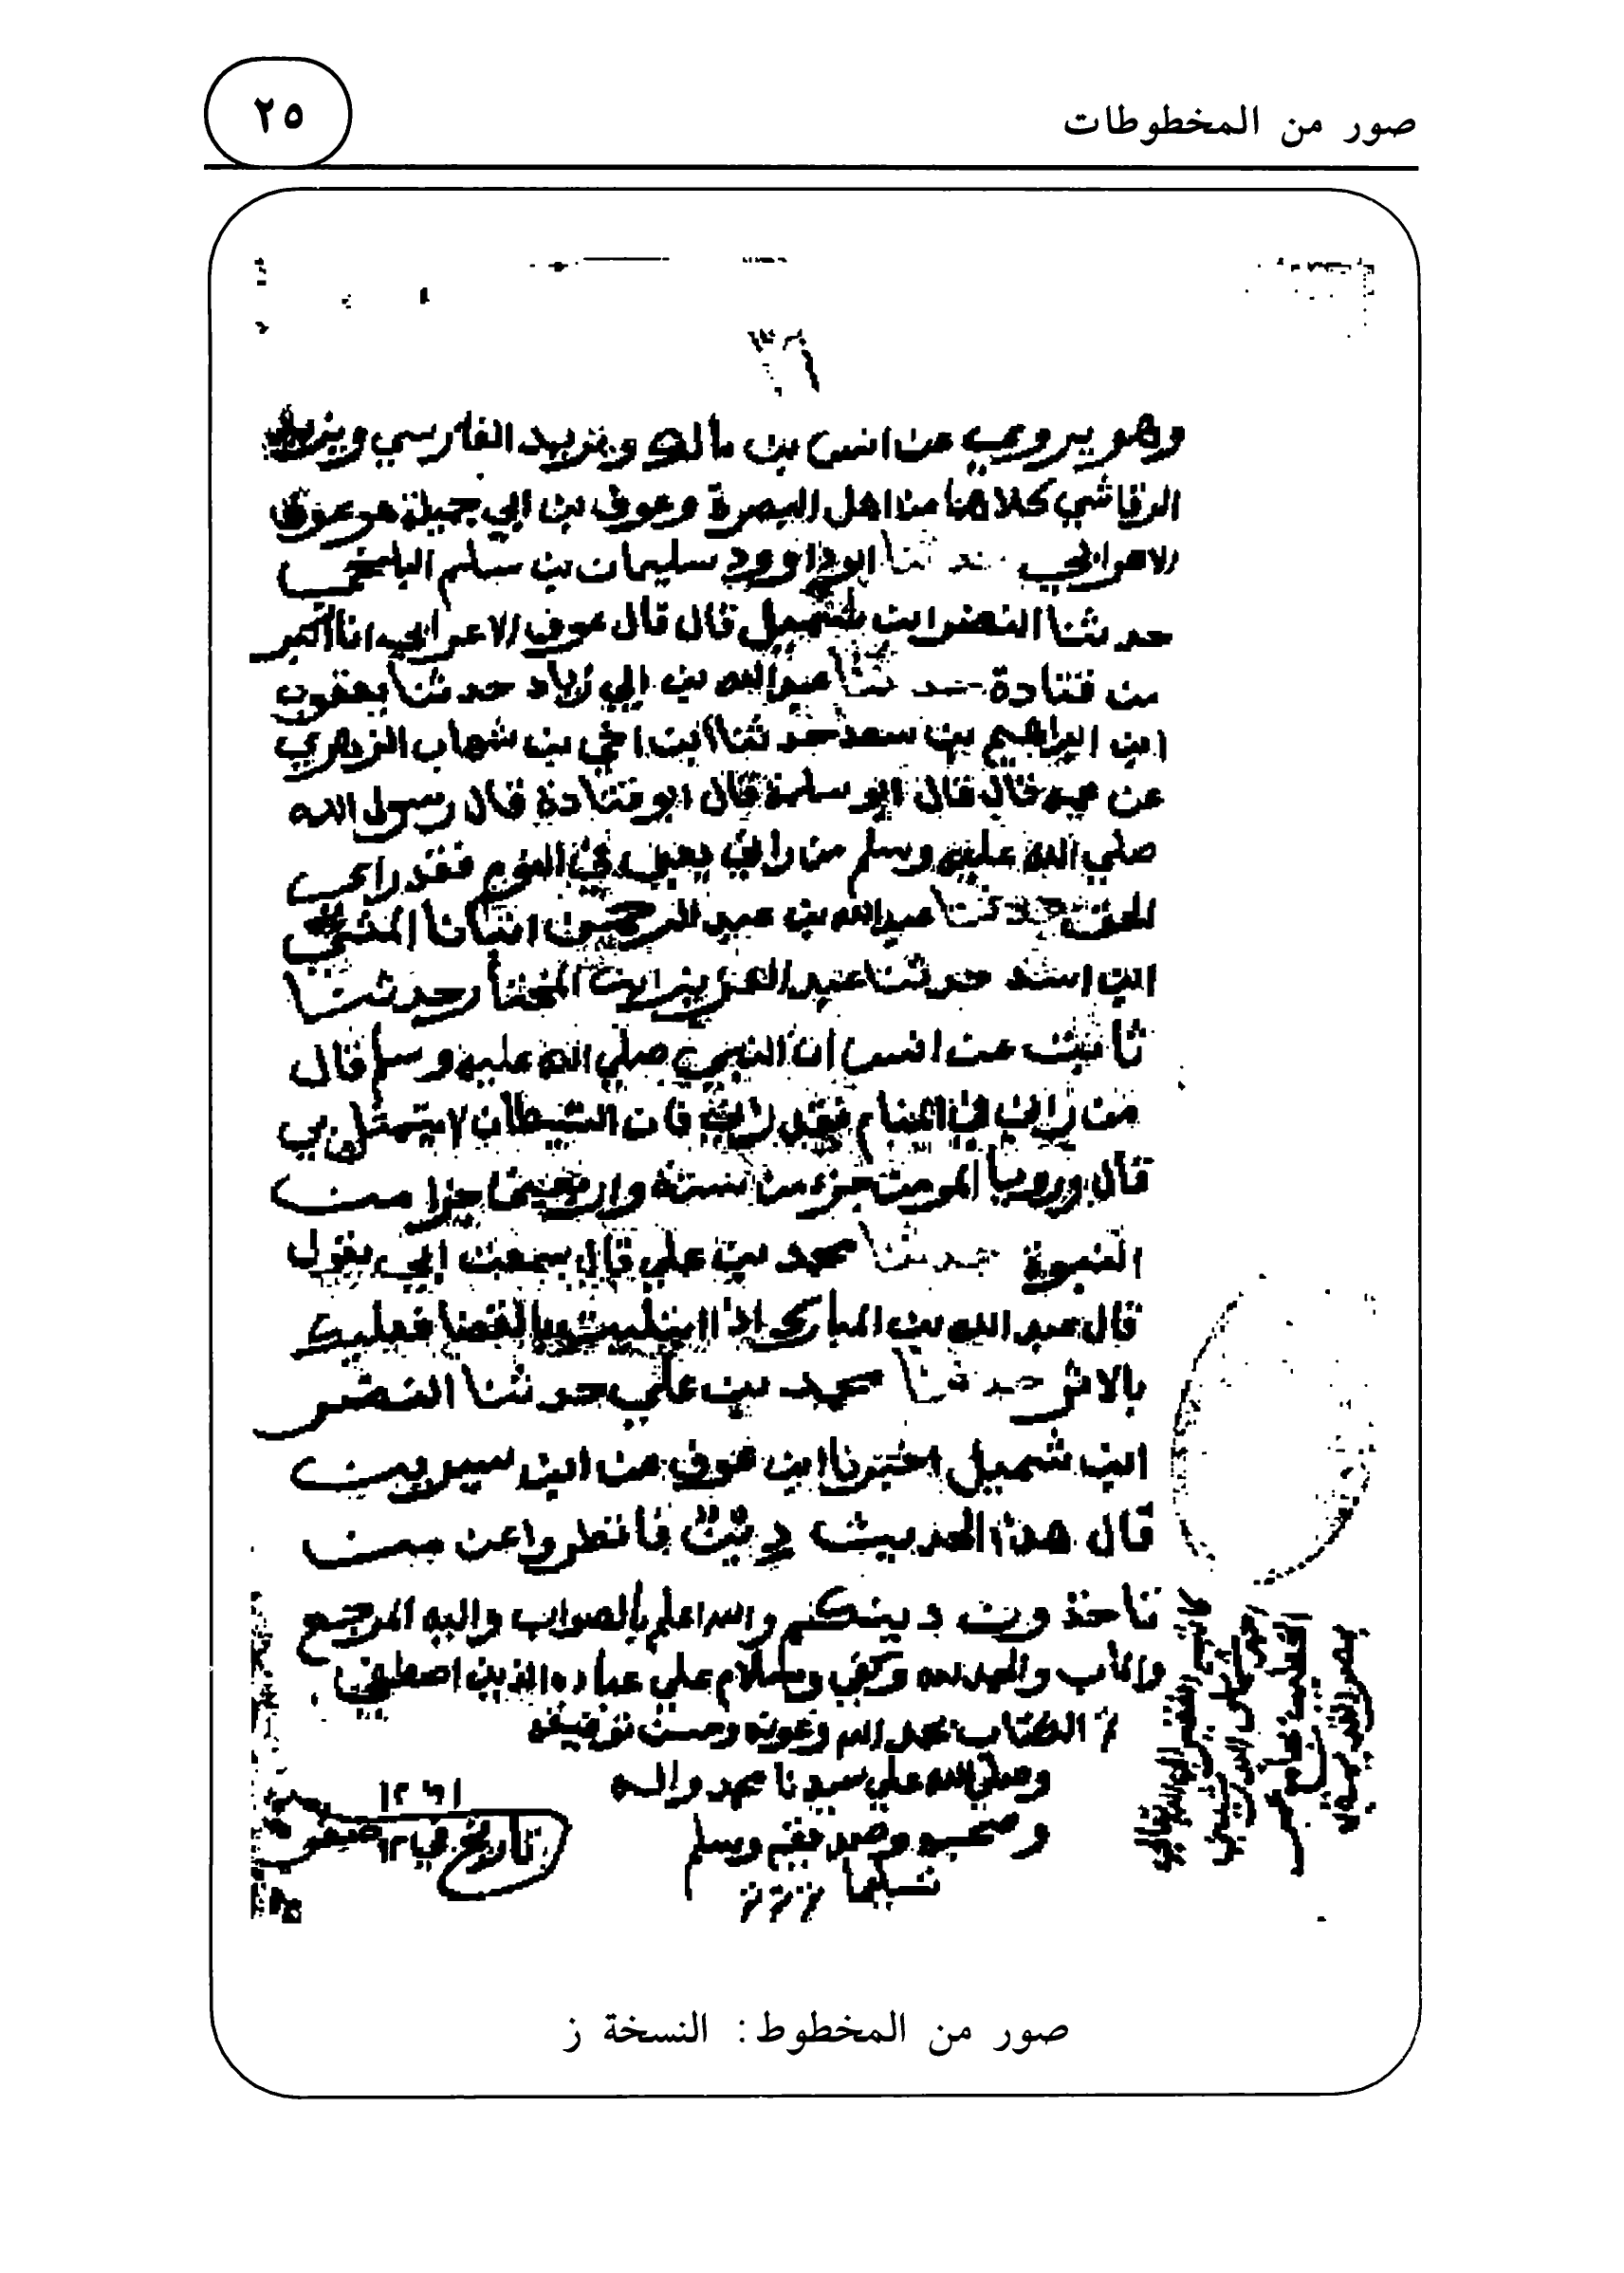 صور من المخطوطات
٢٥
٣٦
وهو يروي عن انس بن مالك ويزيد الفارسي ويزيد
الرقاشي كلاهما من اهل البصرة وعوف بن ابي جميلة هو عوف
الاعرابي حدثنا ابو داوود سليمان بن سلم البلخي
حدثنا النضر ابن شميل قال قال عوف الاعرابي انا اكبر
من قتادة حدثنا عبدالله بن ابي زياد حدثنا يعقوب
ابن ابراهيم بن سعد حدثنا ابن اخي بن شهاب الزهري
عن عمه قال قال ابو سلمة قال ابو قتادة قال رسول الله
صلي الله عليه وسلم من راني يعني في النوم فقد راي
الحق حدثنا عبدالله بن عبد الرحمن انبانا المعلي
ابن اسد حدثنا عبد العزيز ابن المختار حدثنا
ثابت عن انس ان النبي صلي الله عليه وسلم قال
من راني في المنام فقد راني فان الشيطان لا يتمثل بي
قال ورويا المومن جزء من ستة واربعين جزا من
النبوة حدثنا محمد بن علي قال سمعت ابي يقول
قال عبد الله بن المبارك اذا ابتليت بالقضا فعليك
بالاثر حدثنا محمد بن علي حدثنا النضر
ابن شميل اخبرنا ابن عوف عن ابن سيرين
قال هذا الحديث دين فانظروا عن من
تاخذون دينكم والله اعلم بالصواب واليه المرجع
والماب والحمد لله وكفي وسلام علي عباده الذين اصطفي
الكتاب بحمد الله وعونه وحسن توفيقه
وصلي الله علي سيدنا محمد واله
وصحبه وسلم
تسليما
تاريخ في ١٢
صور من المخطوط: النسخة ز